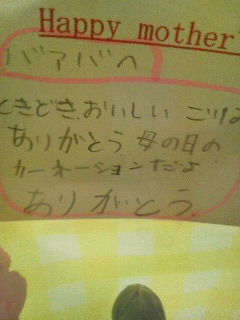 Happy mother'
バァバへ
ときどき、おいしい ごはん
ありがとう、母の日の
カーネーションだよ
ありがとう